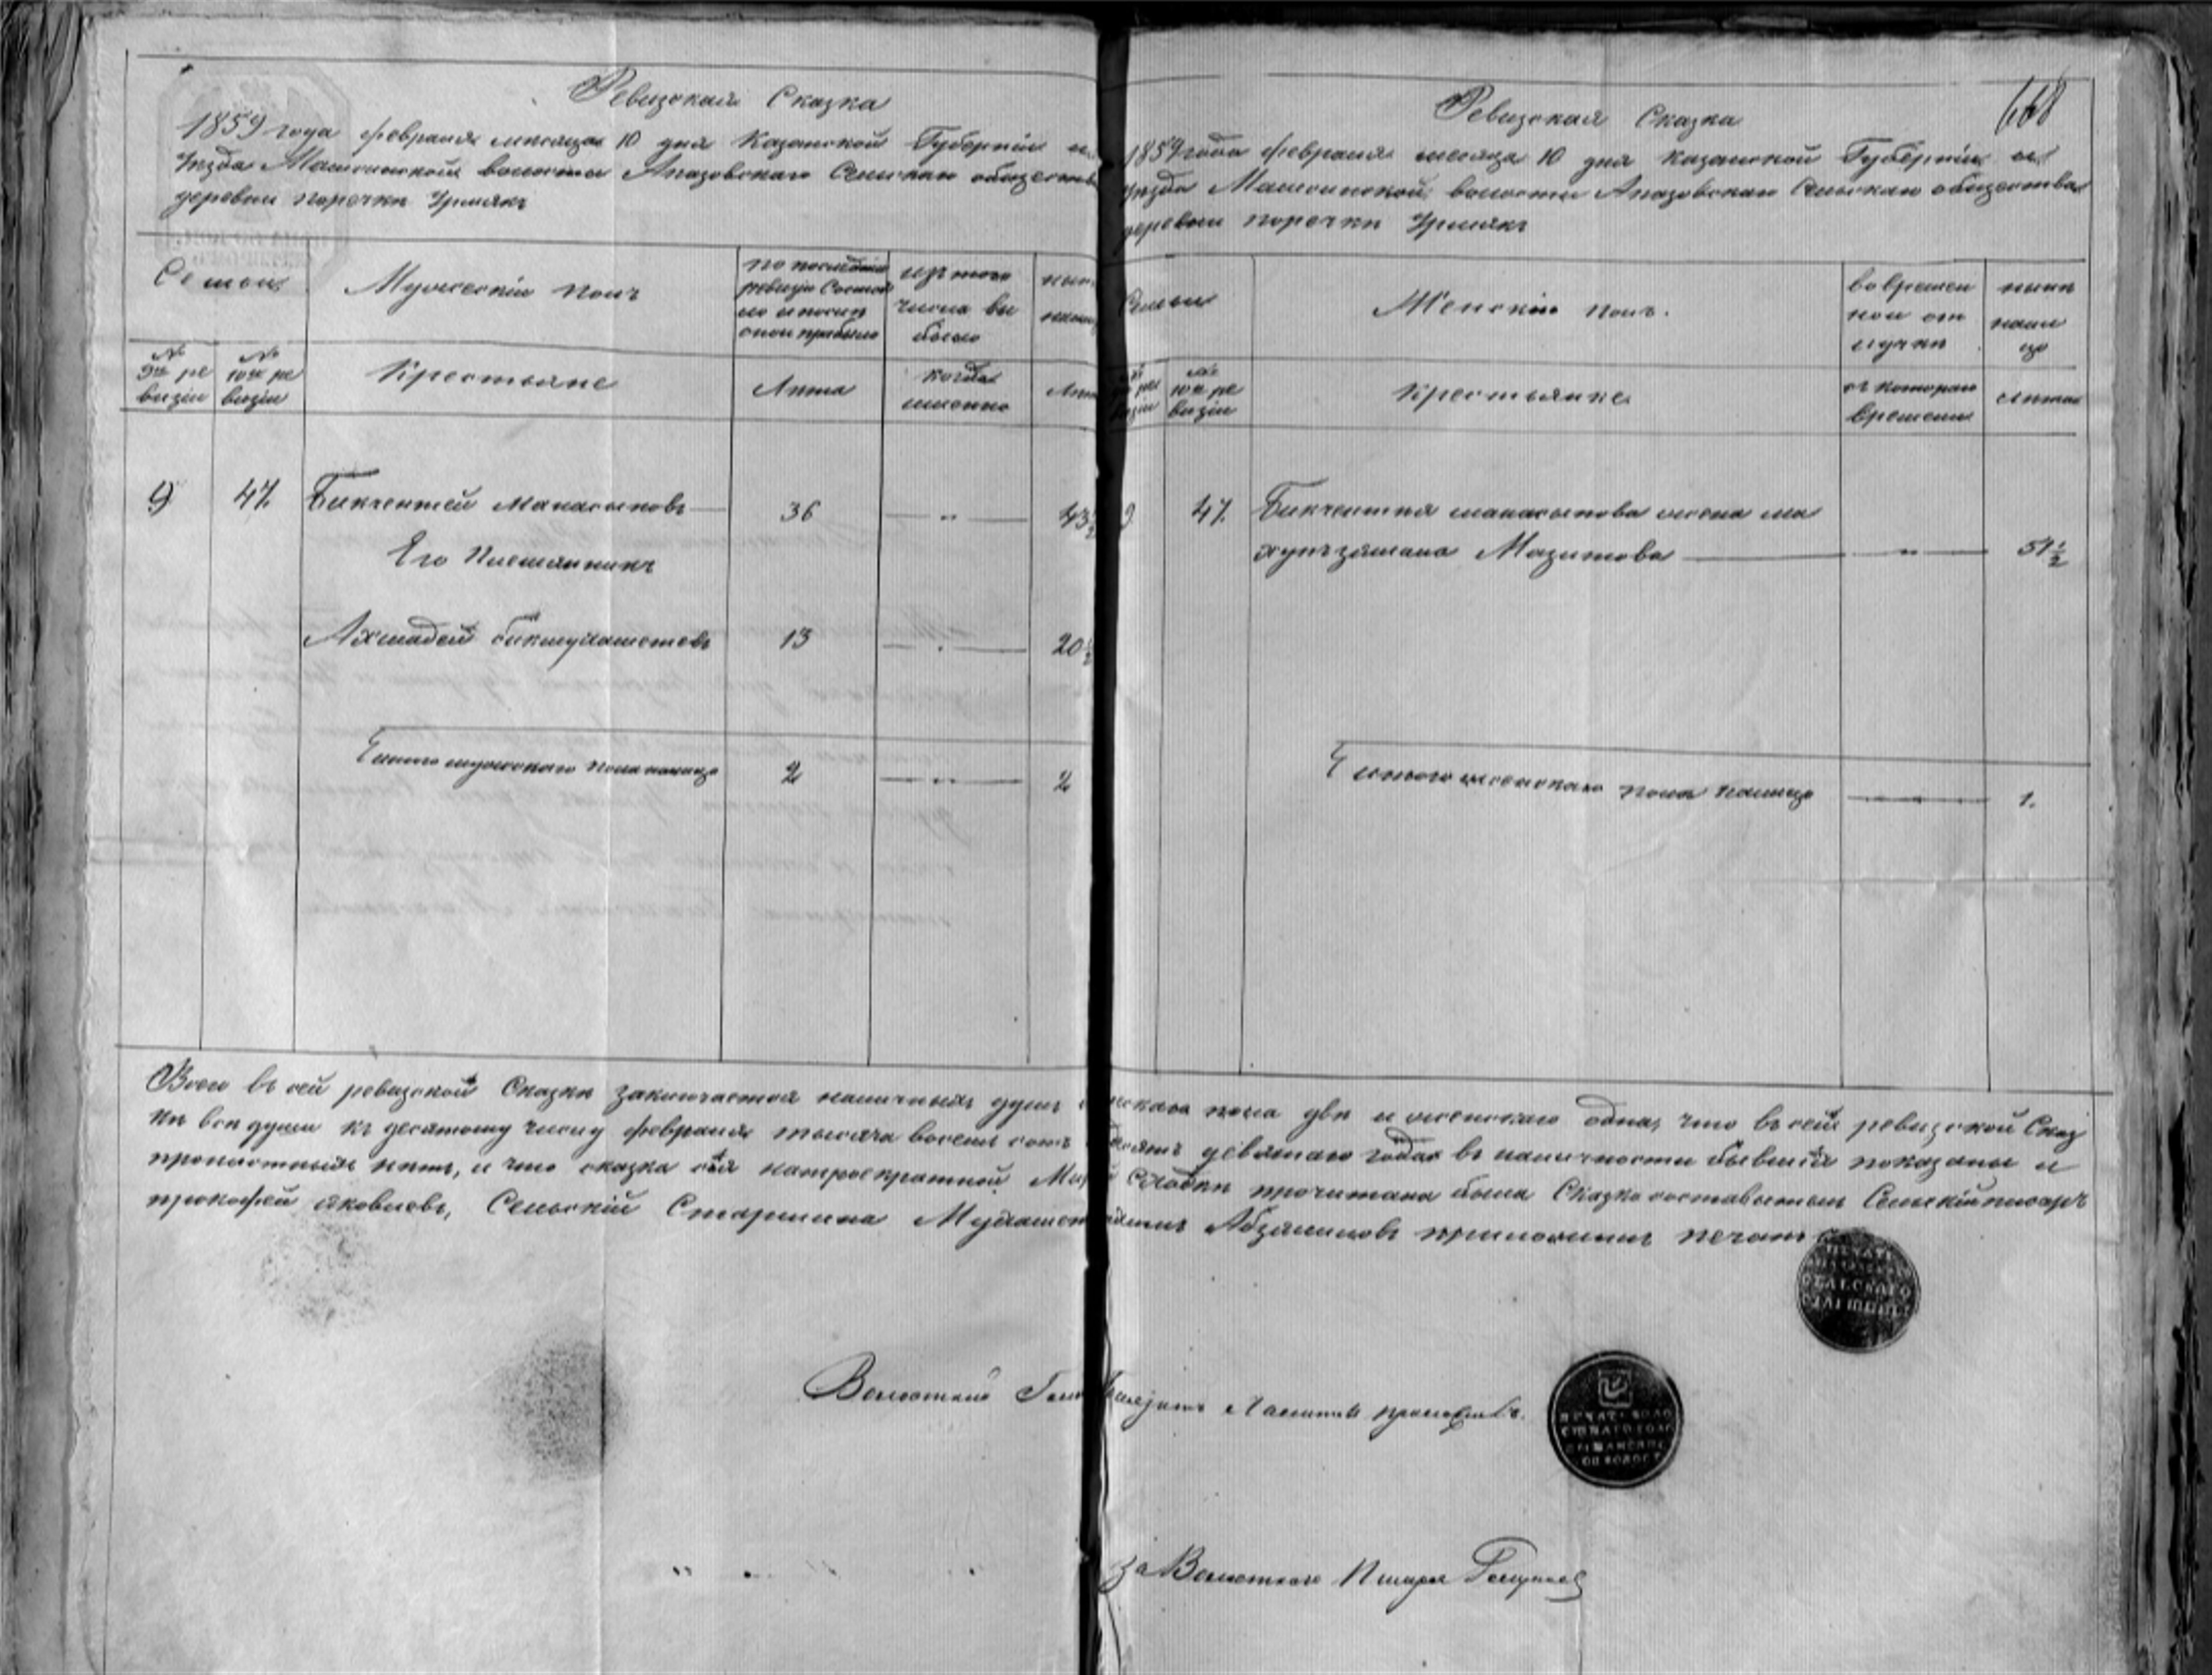 Ревизская Сказка
1859 года февраля месяца 10 дня Казанской Губернии
Уезда Машинской волости Апазовскаго Сельскаго общества
деревни поречки Урмякъ
Семьи
Мужескій полъ
по последней ревизіи Состояло и после оной прибыло
изъ того числа выбыло
ныне
№ 9й ревизіи
№ 10й ревизіи
Крестьяне
Лета
когда именно
Лета
9 47. Бикчентей Манасыповъ 36 — „ — 43 1/2
Его Племянникъ
Ахмадей бикмухаметевъ 13 — „ — 20 1/2
Итого мужескаго пола налицо 2 — „ — 2
668
Ревизская Сказка
1859 года февраля месяца 10 дня Казанской Губерніи
уезда Машинской волости Апазовскаго Сельскаго общества
деревни поречки Урмякъ
Семьи
Женскій полъ.
во временной отлучке
ныне налицо
№ 10й ревизіи
Крестьянке
съ котораго времени
лета
9 47. Бикчентея манасыпова жена
Мазитова — „ — 51 1/2
Итого женскаго пола налицо — „ — 1.
Всего въ сей ревизской Сказке заключается наличныхъ душъ мужскаго пола две и женскаго одна, что въ сей ревизской Сказ
ке все души къ десятому числу февраля тысяча восемь сотъ девятаго года въ наличности бывшія показаны и
прописныхъ нетъ, и что сказка сія на троекратной Мирской Сходке прочитана была Сказку составлялъ Сельскій писарь
прокофей яковлевъ, Сельскій Старшина Абзялиловъ приложилъ печать
ПЕЧАТЬ СЕЛЬСКАГО СТАРШИНЫ
Волостной
приложилъ
ПЕЧАТЬ ВОЛОСТНАГО ГОЛОВЫ ВОЛОСТ
За Волостнаго Писаря